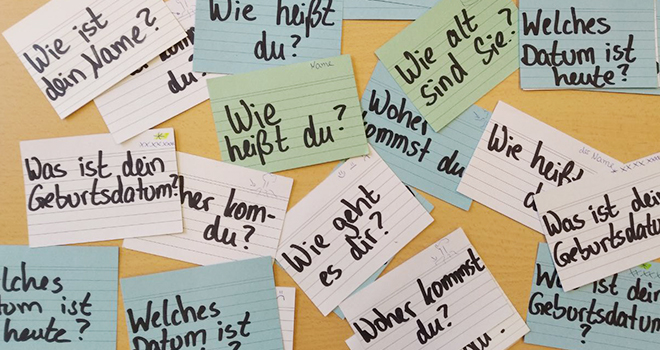 Wie ist
dein Name?
du?
Wie heißt
du?
Wie alt
sind Sie?
Welches
Datum ist
heute?
Name
Wie
heißt du?
Woher
kommst du
Wie heißt
der Name
Was ist dein
Geburtsdatum?
her kom-
du?
Wie geht
es dir?
Was ist dein
Geburtsdatu
Welches
tum ist
heute?
Welches
Datum ist
Woher kommst
du?
Was ist dein
Geburtsdatum
?